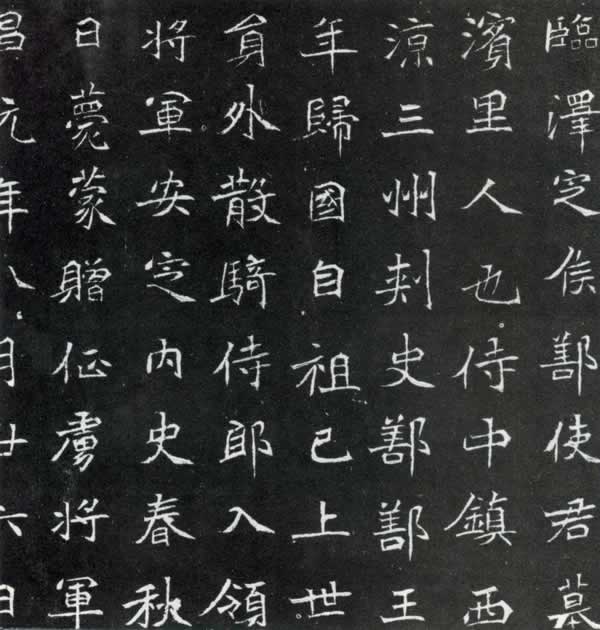 臨澤定侯鄯使君墓
濱里人也侍中鎮西
涼三州刾史鄯鄯王
年歸國自祖已上世
員外散騎侍郎入領
將軍安定內史春秋
日薨蒙贈征虜將軍
昌元年八月廿六日